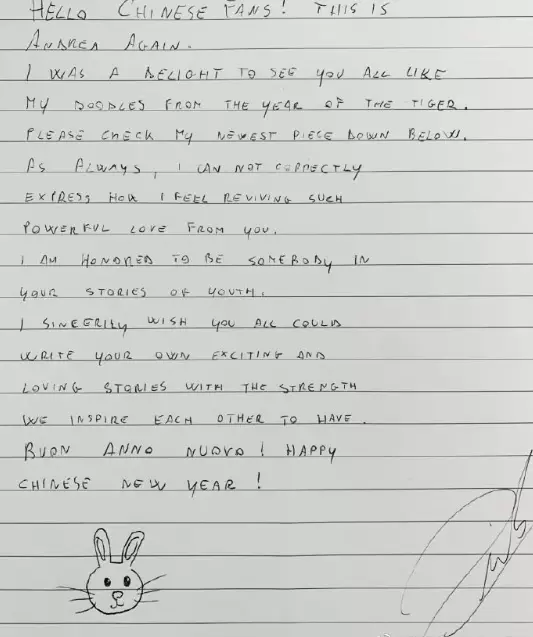 HELLO CHINESE FANS! THIS IS
ANDREA AGAIN.
I WAS A DELIGHT TO SEE YOU ALL LIKE
MY DOODLES FROM THE YEAR OF THE TIGER.
PLEASE CHECK MY NEWEST PIECE DOWN BELOW.
AS ALWAYS, I CAN NOT CORRECTLY
EXPRESS HOW I FEEL REVIVING SUCH
POWERFUL LOVE FROM YOU.
I AM HONORED TO BE SOMEBODY IN
YOUR STORIES OF YOUTH.
I SINCERILY WISH YOU ALL COULD
WRITE YOUR OWN EXCITING AND
LOVING STORIES WITH THE STRENGTH
WE INSPIRE EACH OTHER TO HAVE.
BUON ANNO NUOVO! HAPPY
CHINESE NEW YEAR!